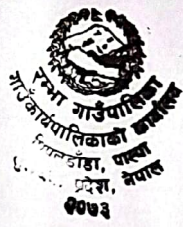 रम्भा गाउँपालिका
गाउँकार्यपालिकाको कार्यालय
डाँडा, पाल्पा
प्रदेश, नेपाल
२०७३